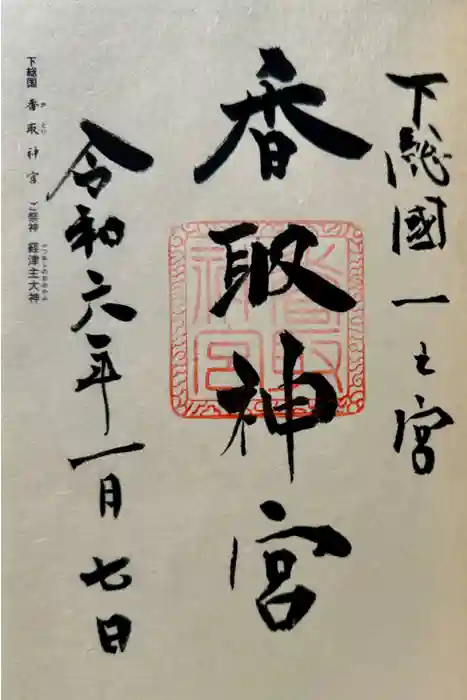 下総國一之宮
香取神宮
令和六年一月七日
下総国 香取神宮 ご祭神 経津主大神
香取
神宮